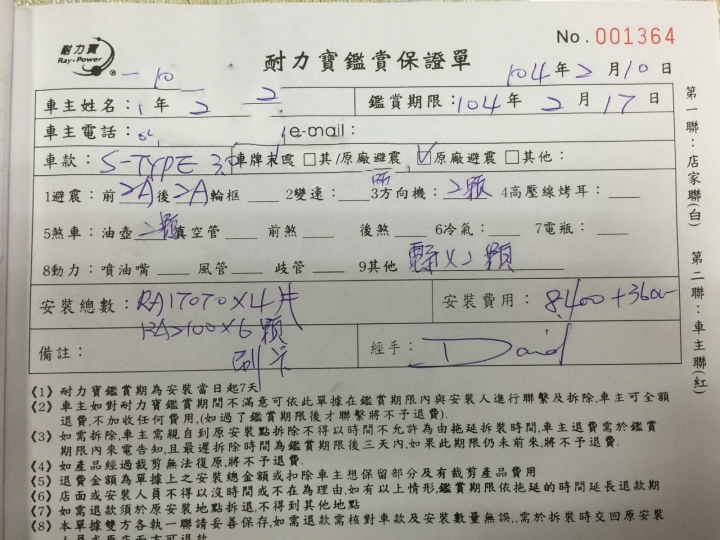 No. 001364
耐力寶
Ray·Power®
耐力寶鑑賞保證單
104年2月10日
車主姓名： 年 2 2 鑑賞期限：104年2月17日
車主電話： e-mail：
車款：S-TYPE 3.0 車牌 □其 原廠避震 ☑原廠避震 □其他：
1避震：前2A後2A輪框 2變速： 3方向機：2顆 4高壓線烤耳：
5煞車：油壺2顆真空管 前煞 後煞 6冷氣： 7電瓶：
8動力：噴油嘴 風管 歧管 9其他 X2顆
安裝總數：RA17070X4片 安裝費用：8,400+3600
RA2100X6顆
備註：刷卡 經手：David
(1) 耐力寶鑑賞期為安裝當日起7天
(2) 車主如對耐力寶鑑賞期間不滿意可依此單據在鑑賞期限內與安裝人進行聯繫及拆除,車主可全額
退費,不加收任何費用,(如過了鑑賞期限後才聯繫將不予退費).
(3) 如需拆除,車主需親自到原安裝點拆除不得以時間不允許為由拖延拆裝時間,車主退費需於鑑賞
期限內來電告知,且最遲拆除時間為鑑賞期限後三天內,如果此期限仍未前來,將不予退費.
(4) 如產品經過裁剪無法復原,將不予退費.
(5) 退費金額為單據上之安裝總金額或扣除車主想保留部分及有裁剪產品費用
(6) 店面或安裝人員不得以沒時間或不在為理由,如有以上情形,鑑賞期限依拖延的時間延長退款期
(7) 如需退款須於原安裝地點拆退,不得到其他地點
(8) 本單據雙方各執一聯請妥善保存,如需退款需核對車款及安裝數量無誤,,需於拆裝時交回原安裝
第一聯：店家聯(白) 第二聯：車主聯(紅)